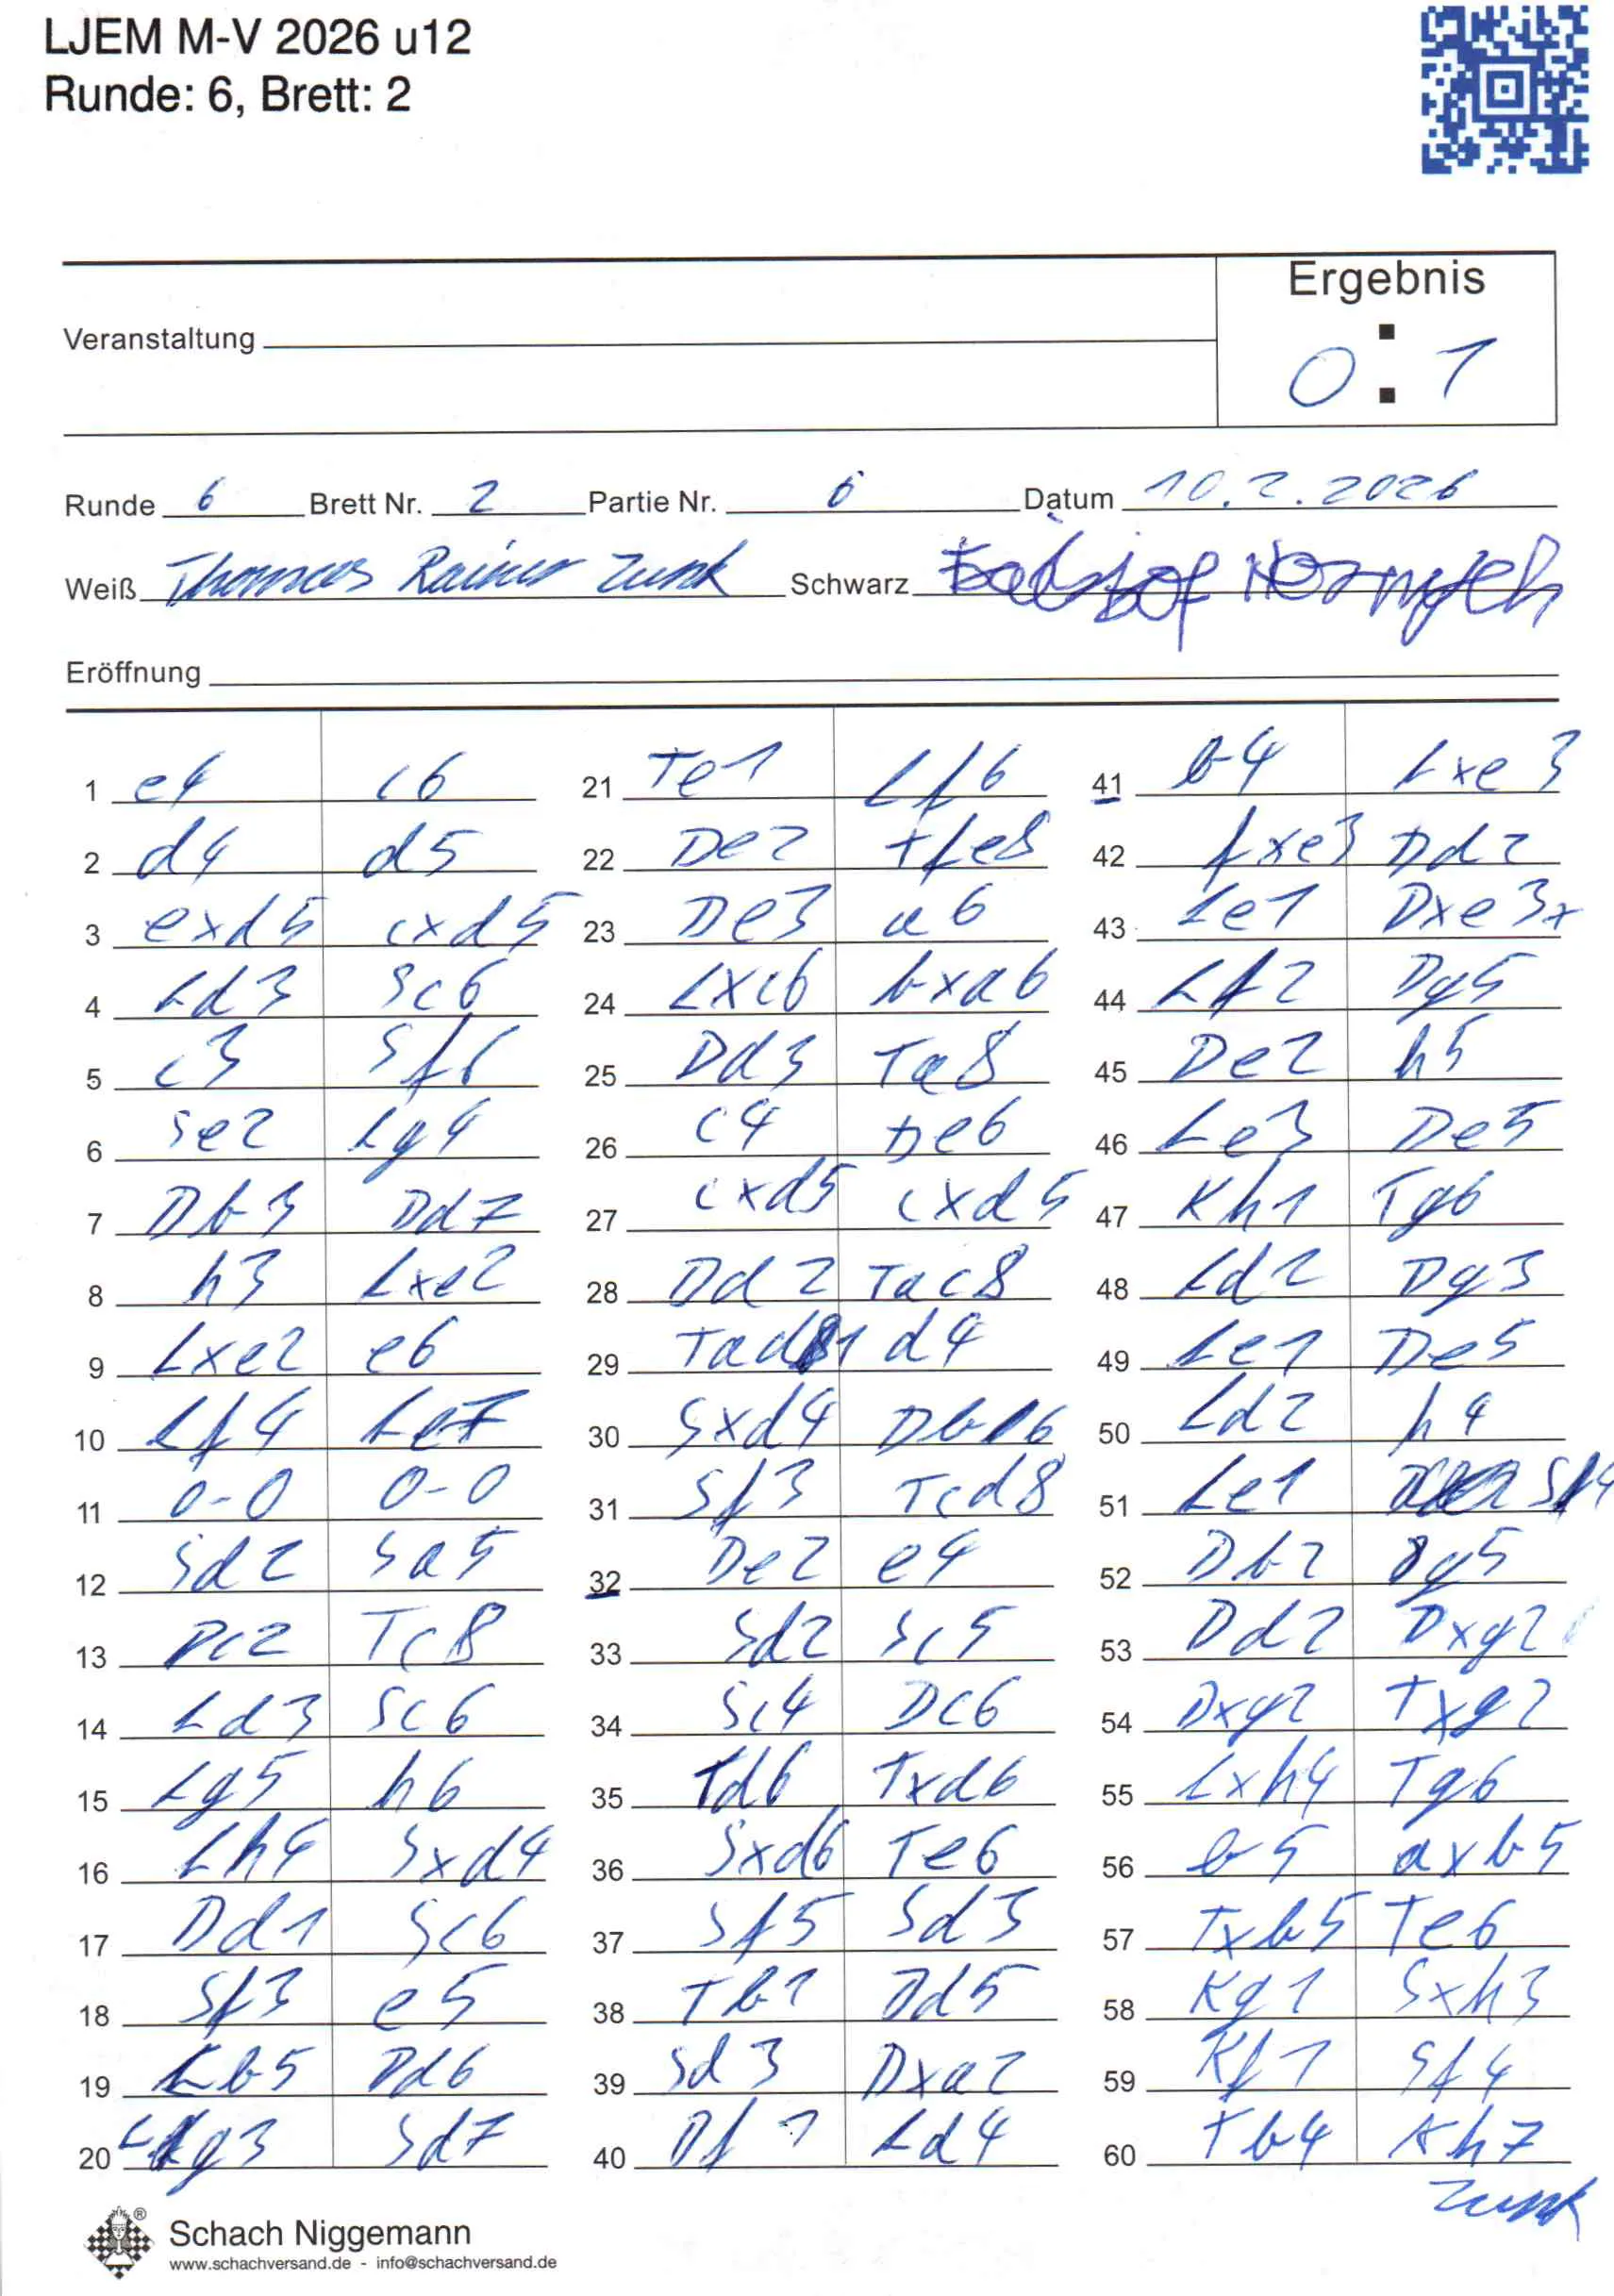 LJEM M-V 2026 u12
Runde: 6, Brett: 2
Ergebnis
Veranstaltung
0 : 1
Runde 6 Brett Nr. 2 Partie Nr. 6 Datum 10.2.2026
Weiß Thomas Rainer Zunk Schwarz
Eröffnung
1 e4 c6
2 d4 d5
3 exd5 cxd5
4 Ld3 Sc6
5 c3 Sf6
6 Se2 Lg4
7 Db3 Dd7
8 h3 Lxe2
9 Lxe2 e6
10 Lf4 Le7
11 0-0 0-0
12 Sd2 Sa5
13 Dc2 Tc8
14 Ld3 Sc6
15 Lg5 h6
16 Lh4 Sxd4
17 Dd1 Sc6
18 Sf3 e5
19 Lb5 Dd6
20 Lg3 Sd7
21 Te1 Lf6
22 De2 Tfe8
23 De3 a6
24 Lxc6 bxa6
25 Dd3 Ta8
26 c4 De6
27 cxd5 cxd5
28 Dd2 Tac8
29 Tad1 d4
30 Sxd4 Db6
31 Sf3 Tcd8
32 De2 e4
33 Sd2 Sc5
34 Sc4 Dc6
35 Td6 Txd6
36 Sxd6 Te6
37 Sf5 Sd3
38 Tb1 Dd5
39 Sd3 Dxa2
40 Df1 Ld4
41 b4 Lxe3
42 fxe3 Dd2
43 Le1 Dxe3x
44 Lf2 Dg5
45 De2 h5
46 Le3 De5
47 Kh1 Tg6
48 Ld2 Dg3
49 Le1 De5
50 Ld2 h4
51 Le1 Sf4
52 Db2 Dg5
53 Dd2 Dxg2
54 Dxg2 Txg2
55 Lxh4 Tg6
56 b5 axb5
57 Txb5 Te6
58 Kg1 Sxh3
59 Kf1 Sf4
60 Tb4 Kh7
Zunk
® Schach Niggemann
www.schachversand.de - info@schachversand.de